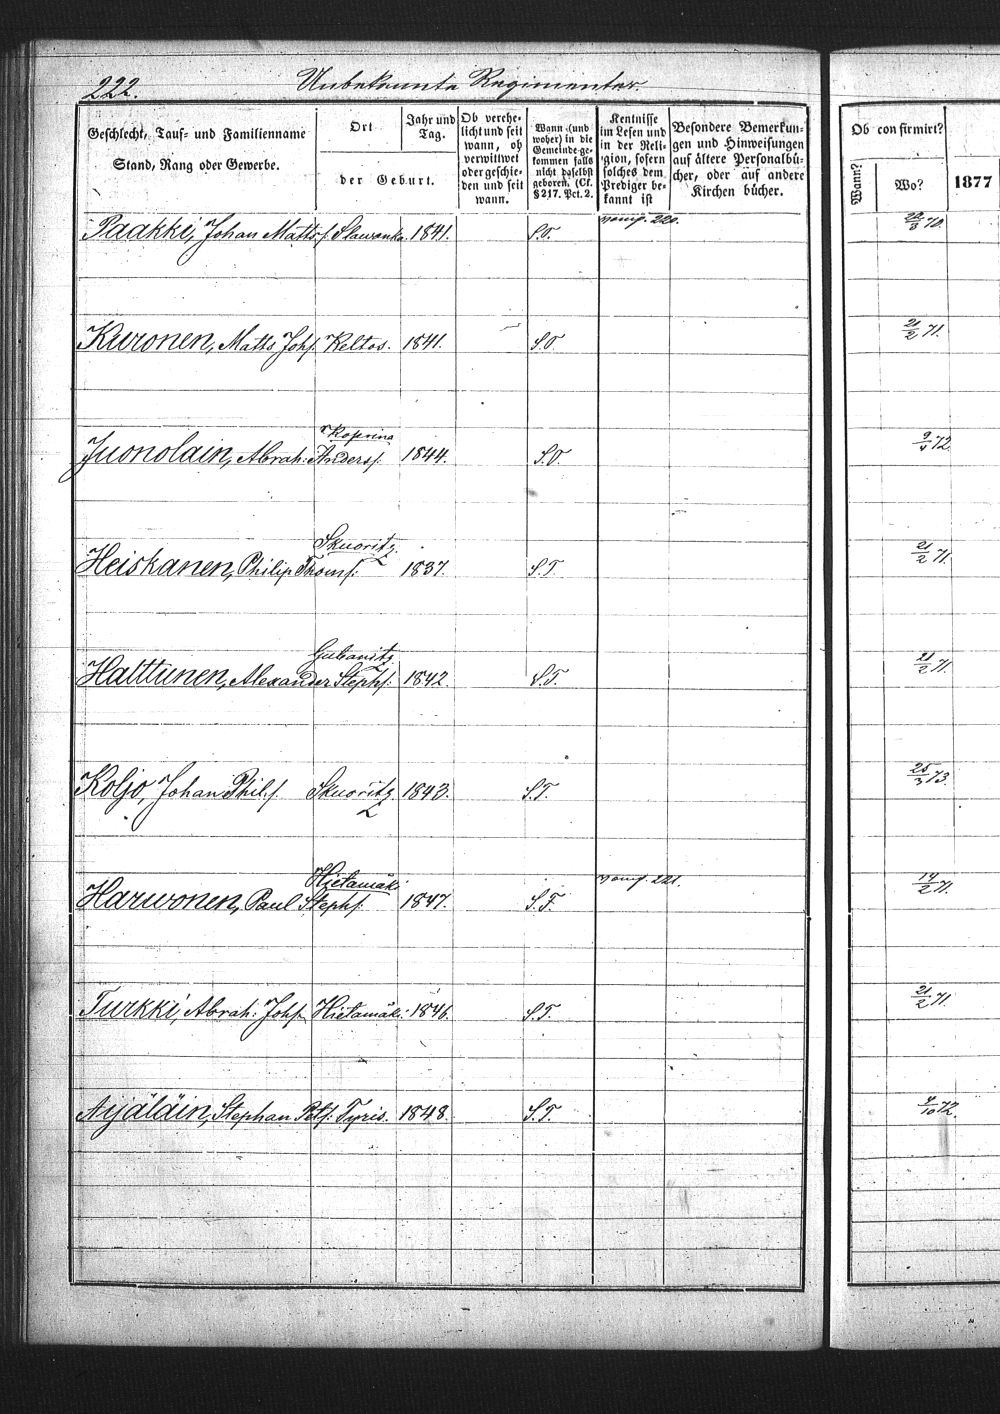 222. Unbekannte Regimenter.
Geschlecht, Tauf- und Familienname
Stand, Rang oder Gewerbe.
Ort
der Geburt.
Jahr und
Tag.
Ob verehe-
licht und seit
wann, ob
verwittwet
oder geschie-
den und seit
wann.
Wann (und
woher) in die
Gemeinde ge-
kommen falls
nicht daselbst
geboren. (Cf.
§ 217. Pct. 2.
Kentnisse
im Lesen und
in der Reli-
gion, sofern
solches dem
Prediger be-
kannt ist
Besondere Bemerkun-
gen und Hinweisungen
auf ältere Personalbü-
cher, oder auf andere
Kirchen bücher.
Ob confirmirt?
Wann?
Wo?
1877
Paakki, Johan Matts f. Slawanka 1841. S.T. 220. 22/3 70.
Kuronen, Matts Johf. Keltos. 1841. S.O. 21/2 71.
Koprina
Juonolain, Abrah: Andersf. 1844. S.O. 9/4 72
Skuoritz
Heiskanen, Philip Thomf. 1837. S.T. 21/2 71.
Gubanitz
Halttunen, Alexander Stephf. 1842. S.T. 21/2 71.
Koljo, Johan Philf. Skuoritz. 1843. S.T. 25/3 73.
Hietamäki
Harwonen, Paul Stephf. 1847. S.T. 221. 14/2 71.
Turkki, Abrah: Johf. Hietamäki. 1846. S.T. 21/2 71.
Äyjäläin, Stephan Petf. Tyris. 1848. S.T. 4/10 72.